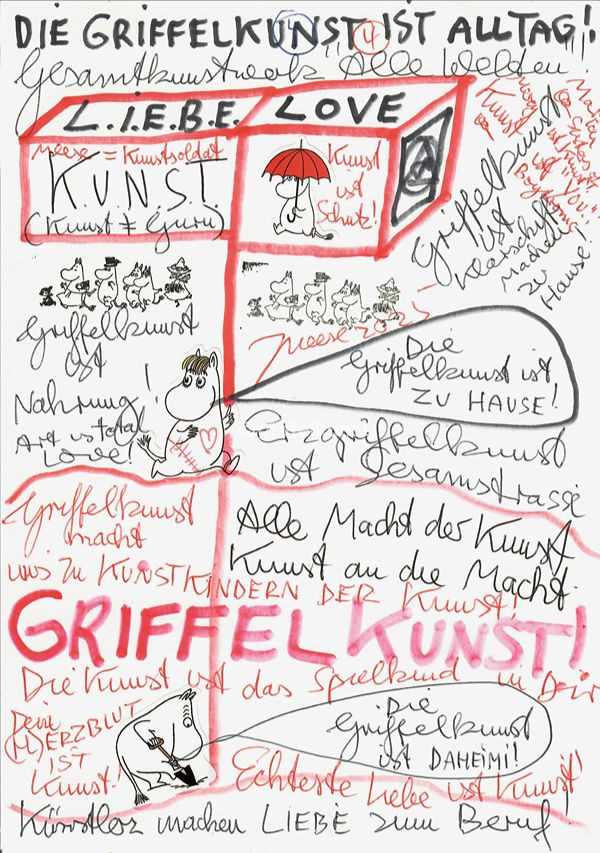 DIE GRIFFELKUNST IST ALLTAG!
4 4
Gesamtkunstwerk Alle Welten!
L.I.E.B.E. LOVE
Meese = Kunstsoldat
K.U.N.S.T.
(Kunst ≠ Guru)
Kunst
ist
Schutz!
Kunst
ist YOU!!
Griffelkunst
ist
Klarschiff
Machen
zu
Hause!
Griffelkunst
ist
Nahrung!
Art is total
Love!
Meese 2025
Die
Griffelkunst ist
ZU HAUSE!
Erzgriffelkunst
ist Gesamstrasse
Griffelkunst
macht
uns zu KUNSTKINDERN DER Kunst!
Alle Macht der Kunst
Kunst an die Macht.
GRIFFELKUNST!
Die Kunst ist das Spielkind in Dir
Deine
(H)ERZBLUT
IST
Kunst!
Die
Griffelkunst
ist DAHEIM!
Echteste Liebe ist Kunst!
Künstler machen LIEBE zum Beruf!